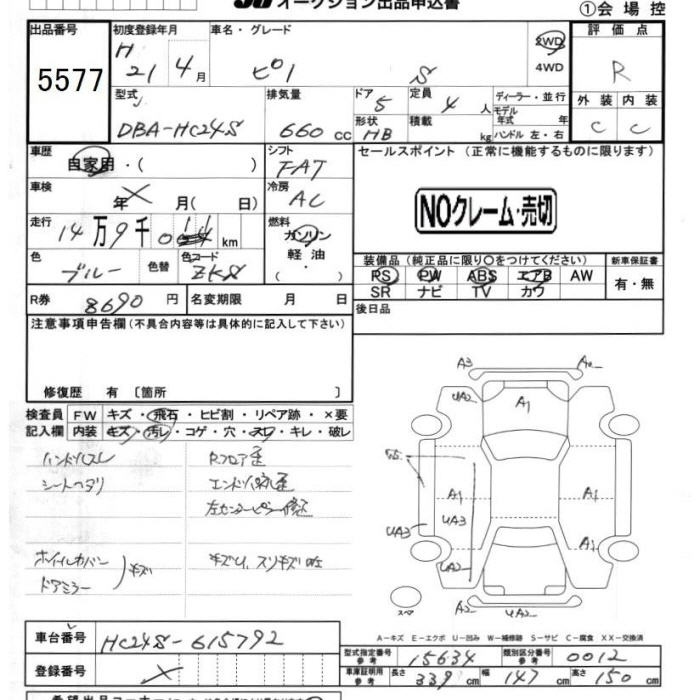 オークション出品申込書
①会場控
出品番号
5577
初度登録年月
H
21 4月
車名・グレード
ピノ S
2WD
4WD
評価点
R
型式
DBA-HC24S
排気量
660 cc
ドア
5
形状
HB
定員
4人
積載
kg
ディーラー・並行
モデル年式 年
ハンドル 左・右
外装 内装
C C
車歴
自家用・( )
シフト
FAT
セールスポイント (正常に機能するものに限ります)
NOクレーム・売切
車検
年 月( 日)
冷房
AC
走行
14万9千0 km
燃料
ガソリン
軽油
・
( )
色
ブルー
色替
色コード
ZKS
装備品(純正品に限り○をつけてください)
PS PW ABS エアB AW
SR ナビ TV カワ
新車保証書
有・無
R券
8690円
名変期限 月 日
後日品
注意事項申告欄(不具合内容等は具体的に記入して下さい)
修復歴 有 〔箇所 〕
検査員
記入欄
FW キズ・飛石・ヒビ割・リペア跡・×要
内装 キズ・汚レ・コゲ・穴・スレ・キレ・破レ
ハンドルスレ
シートヘタリ
Rフロア歪
左センターピラー修正
ホイルカバー
ドアミラー
キズ
A3
UA2
A1
A1
UA3
UA3
UA2
A1
A1
A2
UA2
スペア
A−キズ E−エクボ U−凹み W−補修跡 S−サビ C−腐食 XX−交換済
車台番号
HC24S-615792
登録番号
型式指定番号
参考
15634
類別区分番号
参考
0012
車庫証明用
参考
長さ 339 cm 幅 147 cm 高さ 150 cm